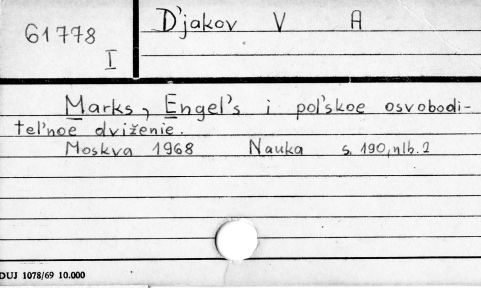 61778
I
D'jakov V A
Marks, Engel's i pol'skoe osvobodi-
tel'noe dviženie.
Moskva 1968 Nauka s. 190, nlb. 2
DUJ 1078/69 10.000